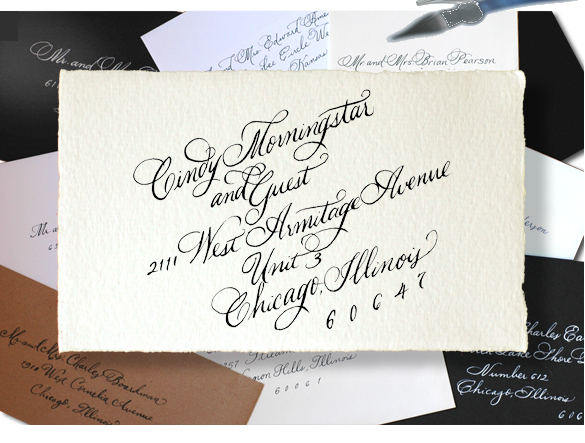 Mr. and Mrs. Edward
Circle
Kansas
Mr. and Mrs. Brian Pearson
Mr. and
Cindy Morningstar
and Guest
2111 West Armitage Avenue
Unit 3
Chicago, Illinois
60647
Mr. and Mrs. Charles Boardman
1910 West Cornelia Avenue
Chicago, Illinois
Vernon Hills, Illinois
60061
Charles
Lake Shore
Number 612
Chicago, Illinois